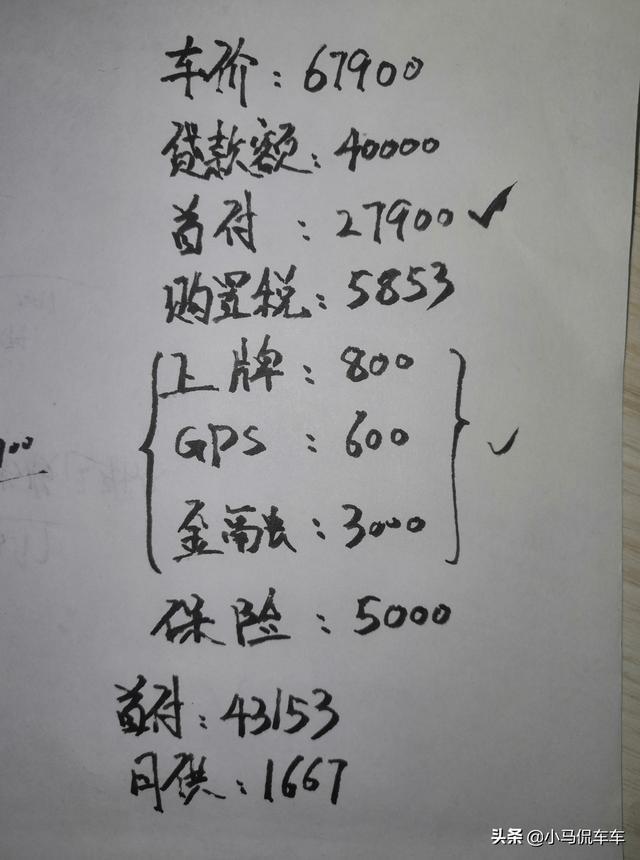 车价：67900
贷款额：40000
首付：27900✓
购置税：5853
上牌：800
GPS：600
金融：3000
保险：5000
首付：43153
月供：1667
头条 @小马侃车车